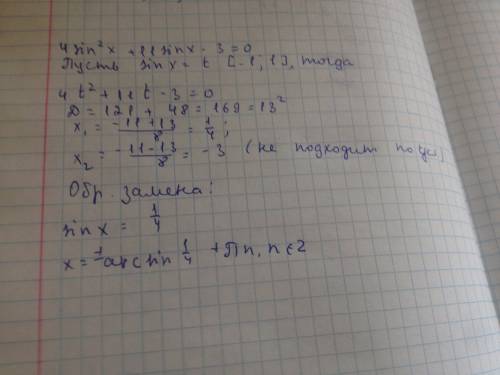 4 sin²x + 11 sinx - 3 = 0
Пусть sinx = t [-1, 1], тогда
4 t² + 11 t - 3 = 0
D = 121 + 48 = 169 = 13²
x₁ = -11+13/8 = 1/4;
x₂ = -11-13/8 = -3 (не подходит по усл)
Обр. замена:
sin x = 1/4
x = ± arcsin 1/4 + Πn, n ∈ Z